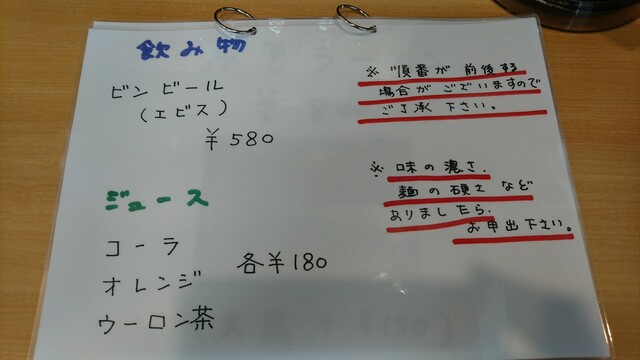 飲み物
ビン ビール
(エビス)
¥580
ジュース
コーラ
オレンジ
ウーロン茶
各¥180
※ 順番が 前後する
場合が ございますので
ご了承 下さい。
※ 味の濃さ、
麺の硬さ など
ありましたら、
お申出下さい。